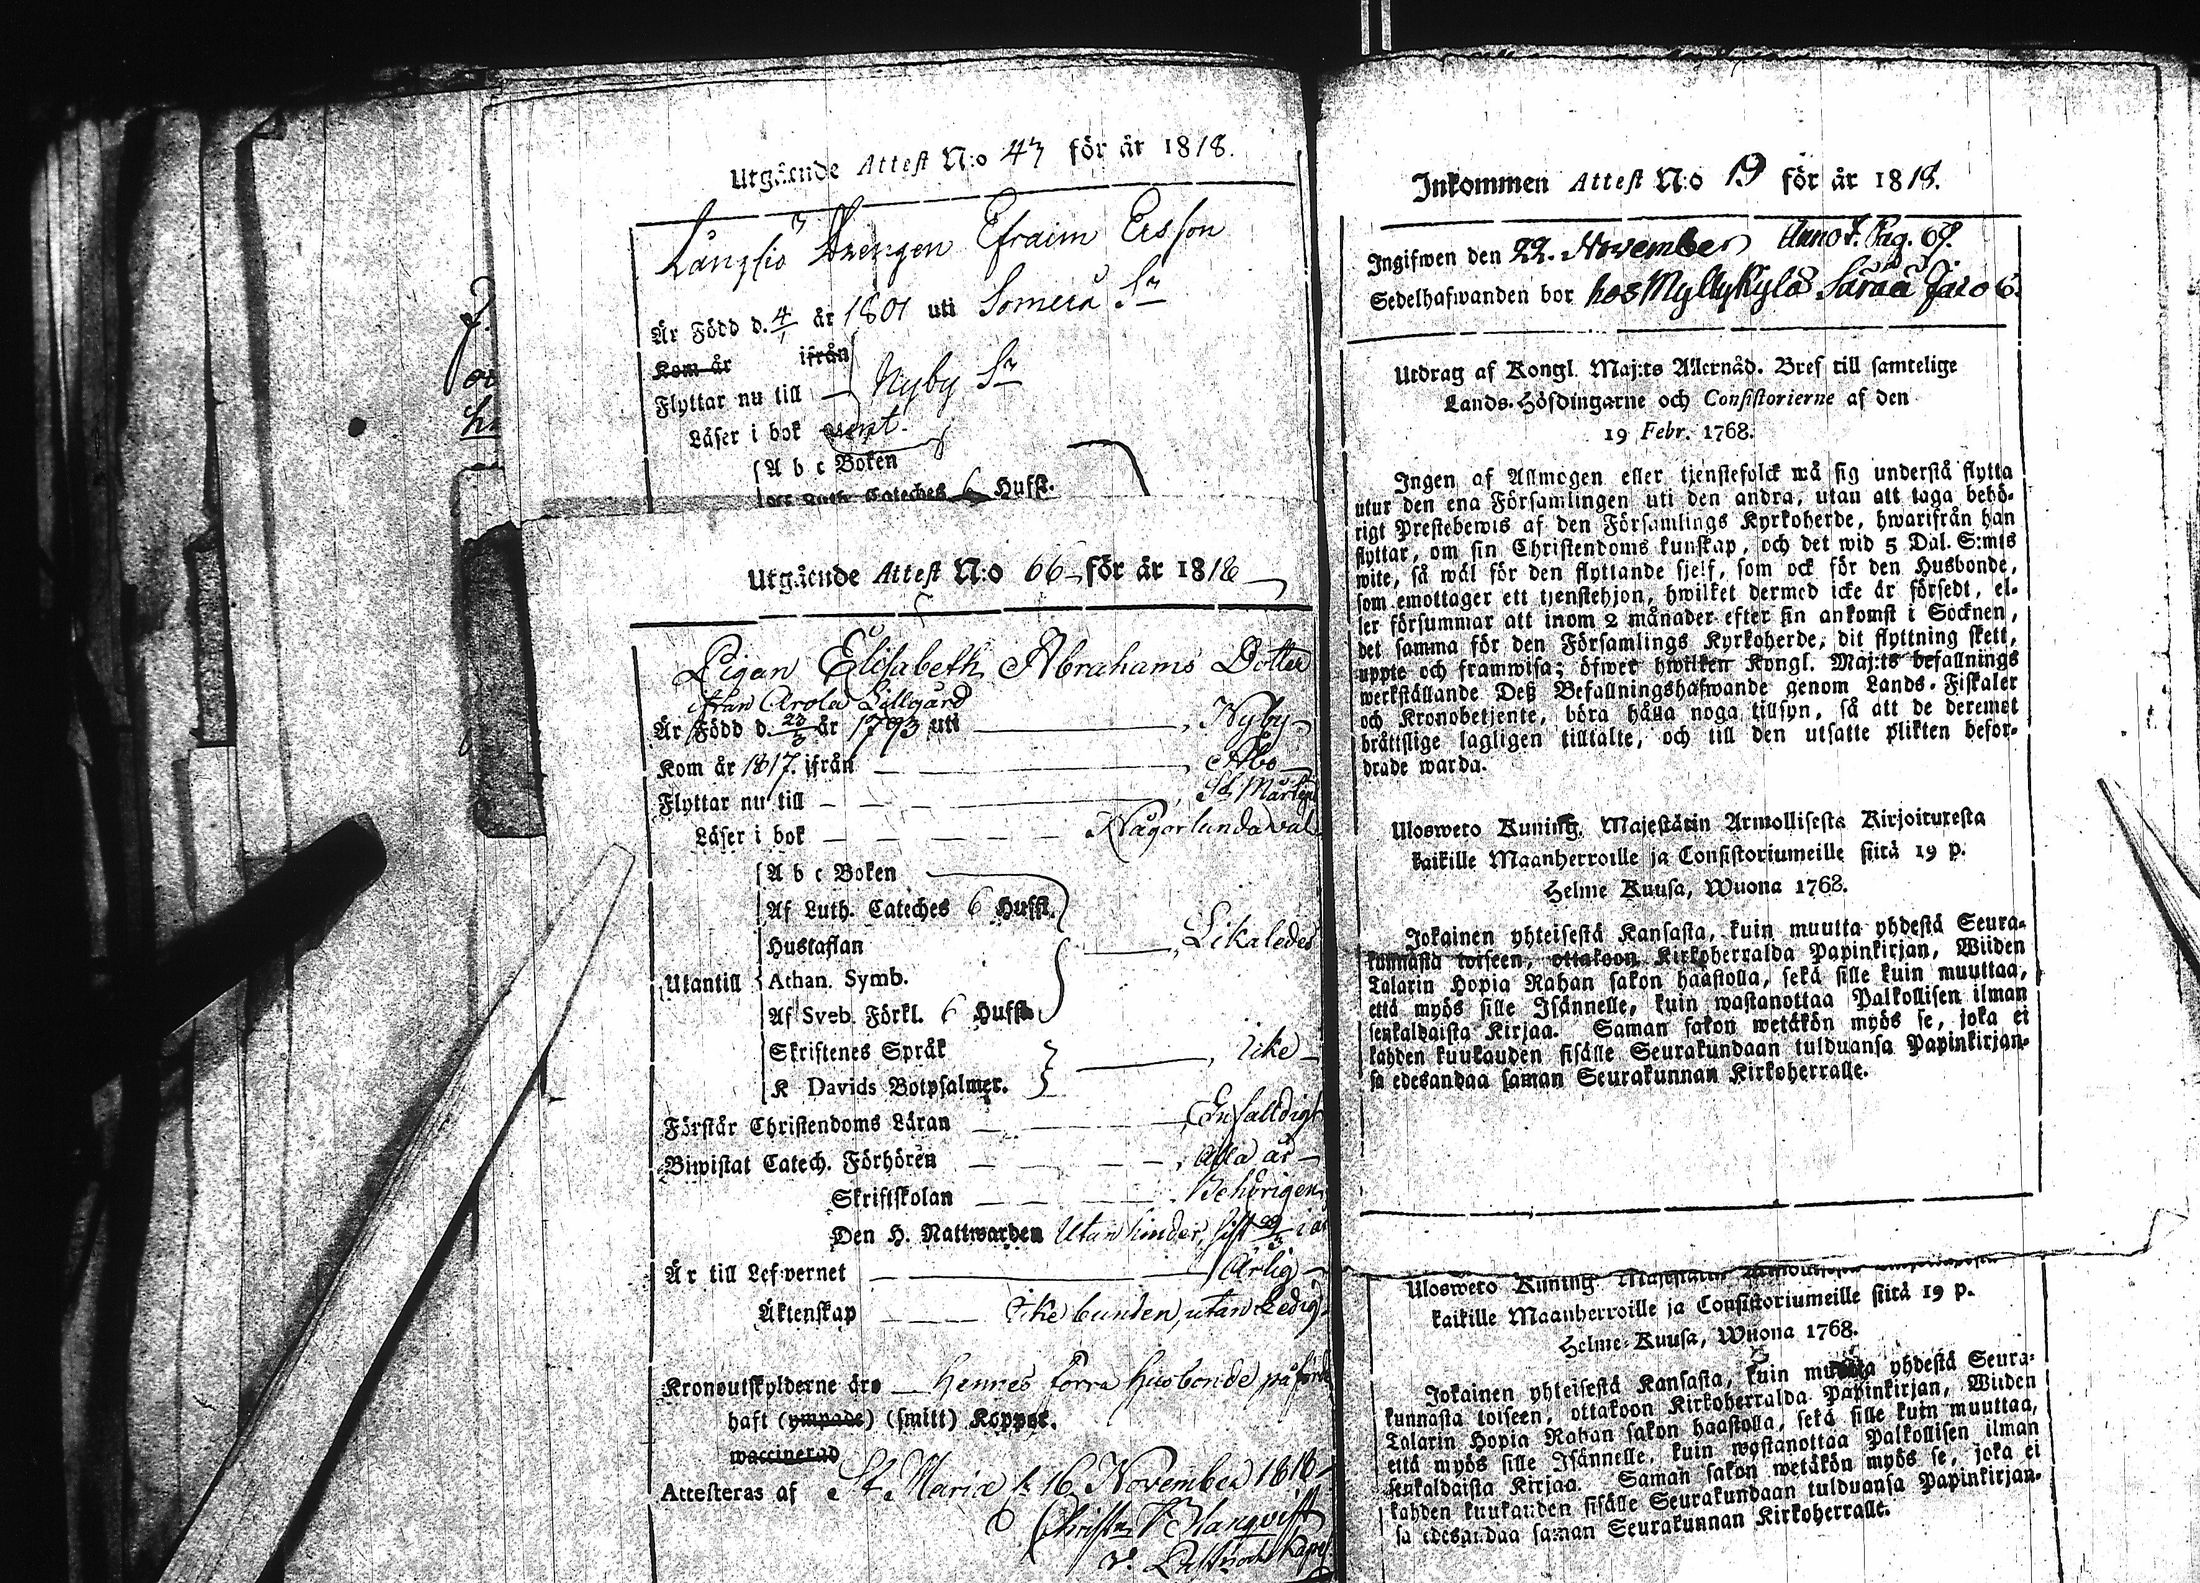 Utgående Attest N:o 43 för år 1818.
Drengen Efraim Ersson
Är Född d. 4/1 år 1801 uti Somero Sn
Kom år ifrån
Flyttar nu till — Nyby Sn
Läser i bok
A b c Boken
Luth. Cateches 6 Hufst.
Utgående Attest N:o 66 för år 1818
Pigan Elisabeth Abrahams Dotter
ifrån Arola Lillgård
Är Född d. 23/3 år 1793 uti Nyby
Kom år 1817. ifrån Åbo
Flyttar nu till St Mårtens
Läser i bok Någorlunda väl
A b c Boken
Af Luth. Cateches 6 Hufst.
Hustaflan Likaledes
Utantill Athan. Symb.
Af Sveb. Förkl. 6 Hufst.
Skriftenes Språk
K Davids Botpsalmer. icke
Förstår Christendoms Läran Enfalldigt
Biwistat Catech. Förhören alla år
Skriftskolan Behörigen
Den H. Nattwarden Utan hinder, sist
Är till Lefwernet Ärlig
Äktenskap icke bunden, utan Ledig
Kronoutskylderne äro Hennes förra husbonde påförde
haft (ympade) (smitt) Koppor.
waccinerad
Attesteras af St Maria d. 16 November 1818
Inkommen Attest N:o 19 för år 1818.
Ingifwen den 22. November Anno Pag. 69.
Sedelhafwanden bor hos Myllykylä Jacob.
Utdrag af Kongl. Maj:ts Allernåd. Bref till samtelige
Lands-Höfdingarne och Consistorierne af den
19 Febr. 1768.
Ingen af Allmogen eller tjenstefolck må sig understå flytta
utur den ena Församlingen uti den andra, utan att taga behö-
rigt Prestebewis af den Församlings Kyrkoherde, hwarifrån han
flyttar, om sin Christendoms kunskap, och det wid 5 Dal. S:mts
wite, så wäl för den flyttande sjelf, som ock för den Husbonde,
som emottager ett tjenstehjon, hwilket dermed icke är försedt, el-
ler försummar att inom 2 månader efter sin ankomst i Socknen,
det samma för den Församlings Kyrkoherde, dit flyttning skett,
uppte och framwisa; öfwer hwilken Kongl. Maj:ts befallnings
werkställande Deß Befallningshafwande genom Lands-Fiskaler
och Kronobetjente, böra hålla noga tillsyn, så att de deremot
bråttslige lagligen tilltalte, och till den utsatte plikten befor-
drade warda.
Ulosweto Kuning. Majestätin Armollisesta Kirjoituxesta
kaikille Maanherroille ja Consistoriumeille siitä 19 p.
Helme Kuusa, Wuona 1768.
Jokainen yhteisestä Kansasta, kuin muutta yhdestä Seura-
kunnasta toiseen, ottakoon Kirkoherralda Papinkirjan, Wiiden
Talarin Hopia Rahan sakon haastolla, sekä sille kuin muuttaa,
että myös sille Isännelle, kuin wastanottaa Palkollisen ilman
senkaldaista Kirjaa. Saman sakon wetäkön myös se, joka ei
kahden kuukauden sisälle Seurakundaan tulduansa Papinkirjan-
sa edesandaa saman Seurakunnan Kirkoherralle.
Ulosweto Kuning. Majestätin
kaikille Maanherroille ja Consistoriumeille siitä 19 p.
Helme-Kuusa, Wuona 1768.
Jokainen yhteisestä Kansasta, kuin muutta yhdestä Seura-
kunnasta toiseen, ottakoon Kirkoherralda Papinkirjan, Wiiden
Talarin Hopia Rahan sakon haastolla, sekä sille kuin muuttaa,
että myös sille Isännelle, kuin wastanottaa Palkollisen ilman
senkaldaista Kirjaa. Saman sakon wetäkön myös se, joka ei
kahden kuukauden sisälle Seurakundaan tulduansa Papinkirjan-
sa edesandaa saman Seurakunnan Kirkoherralle.